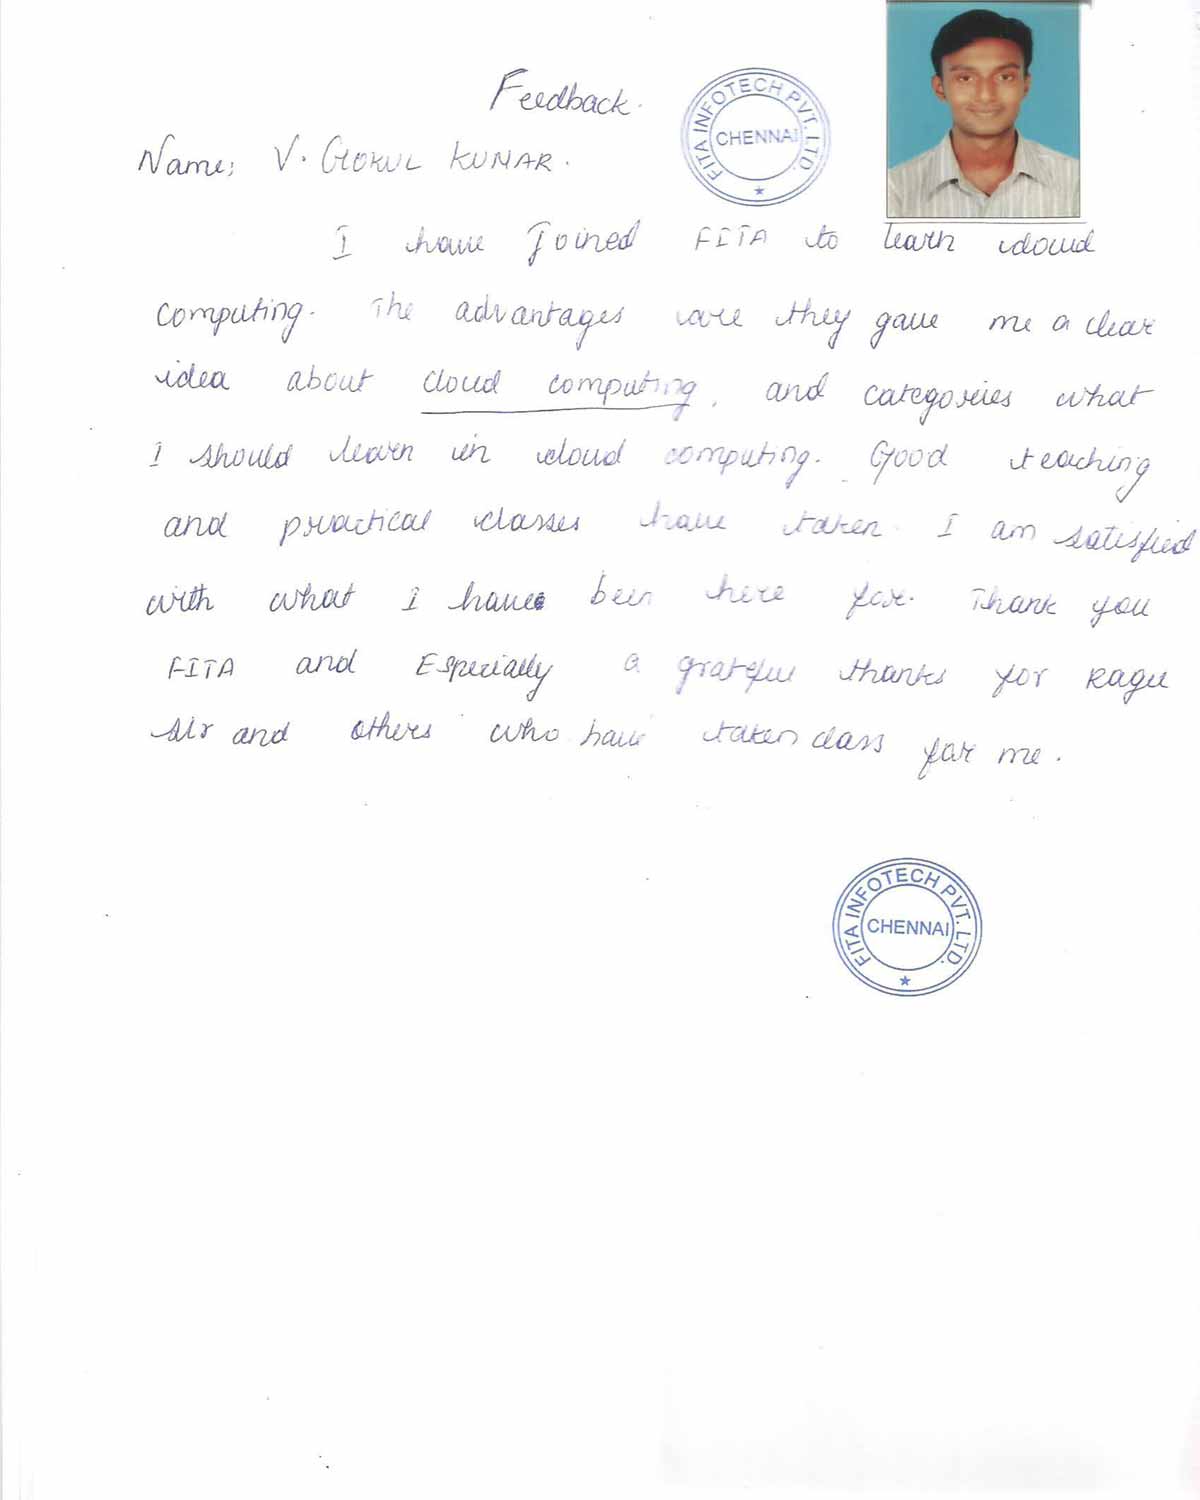 Feedback.
FITA INFOTECH PVT. LTD.
CHENNAI
Name: V. GOKUL KUMAR.
I have Joined FITA to learn cloud
computing. The advantages are they gave me a clear
idea about cloud computing, and categories what
I should learn in cloud computing. Good teaching
and practical classes have taken. I am satisfied
with what I have been here for. Thank you
FITA and Especially a grateful thanks for Ragu
sir and others who have taken class for me.
FITA INFOTECH PVT. LTD.
CHENNAI